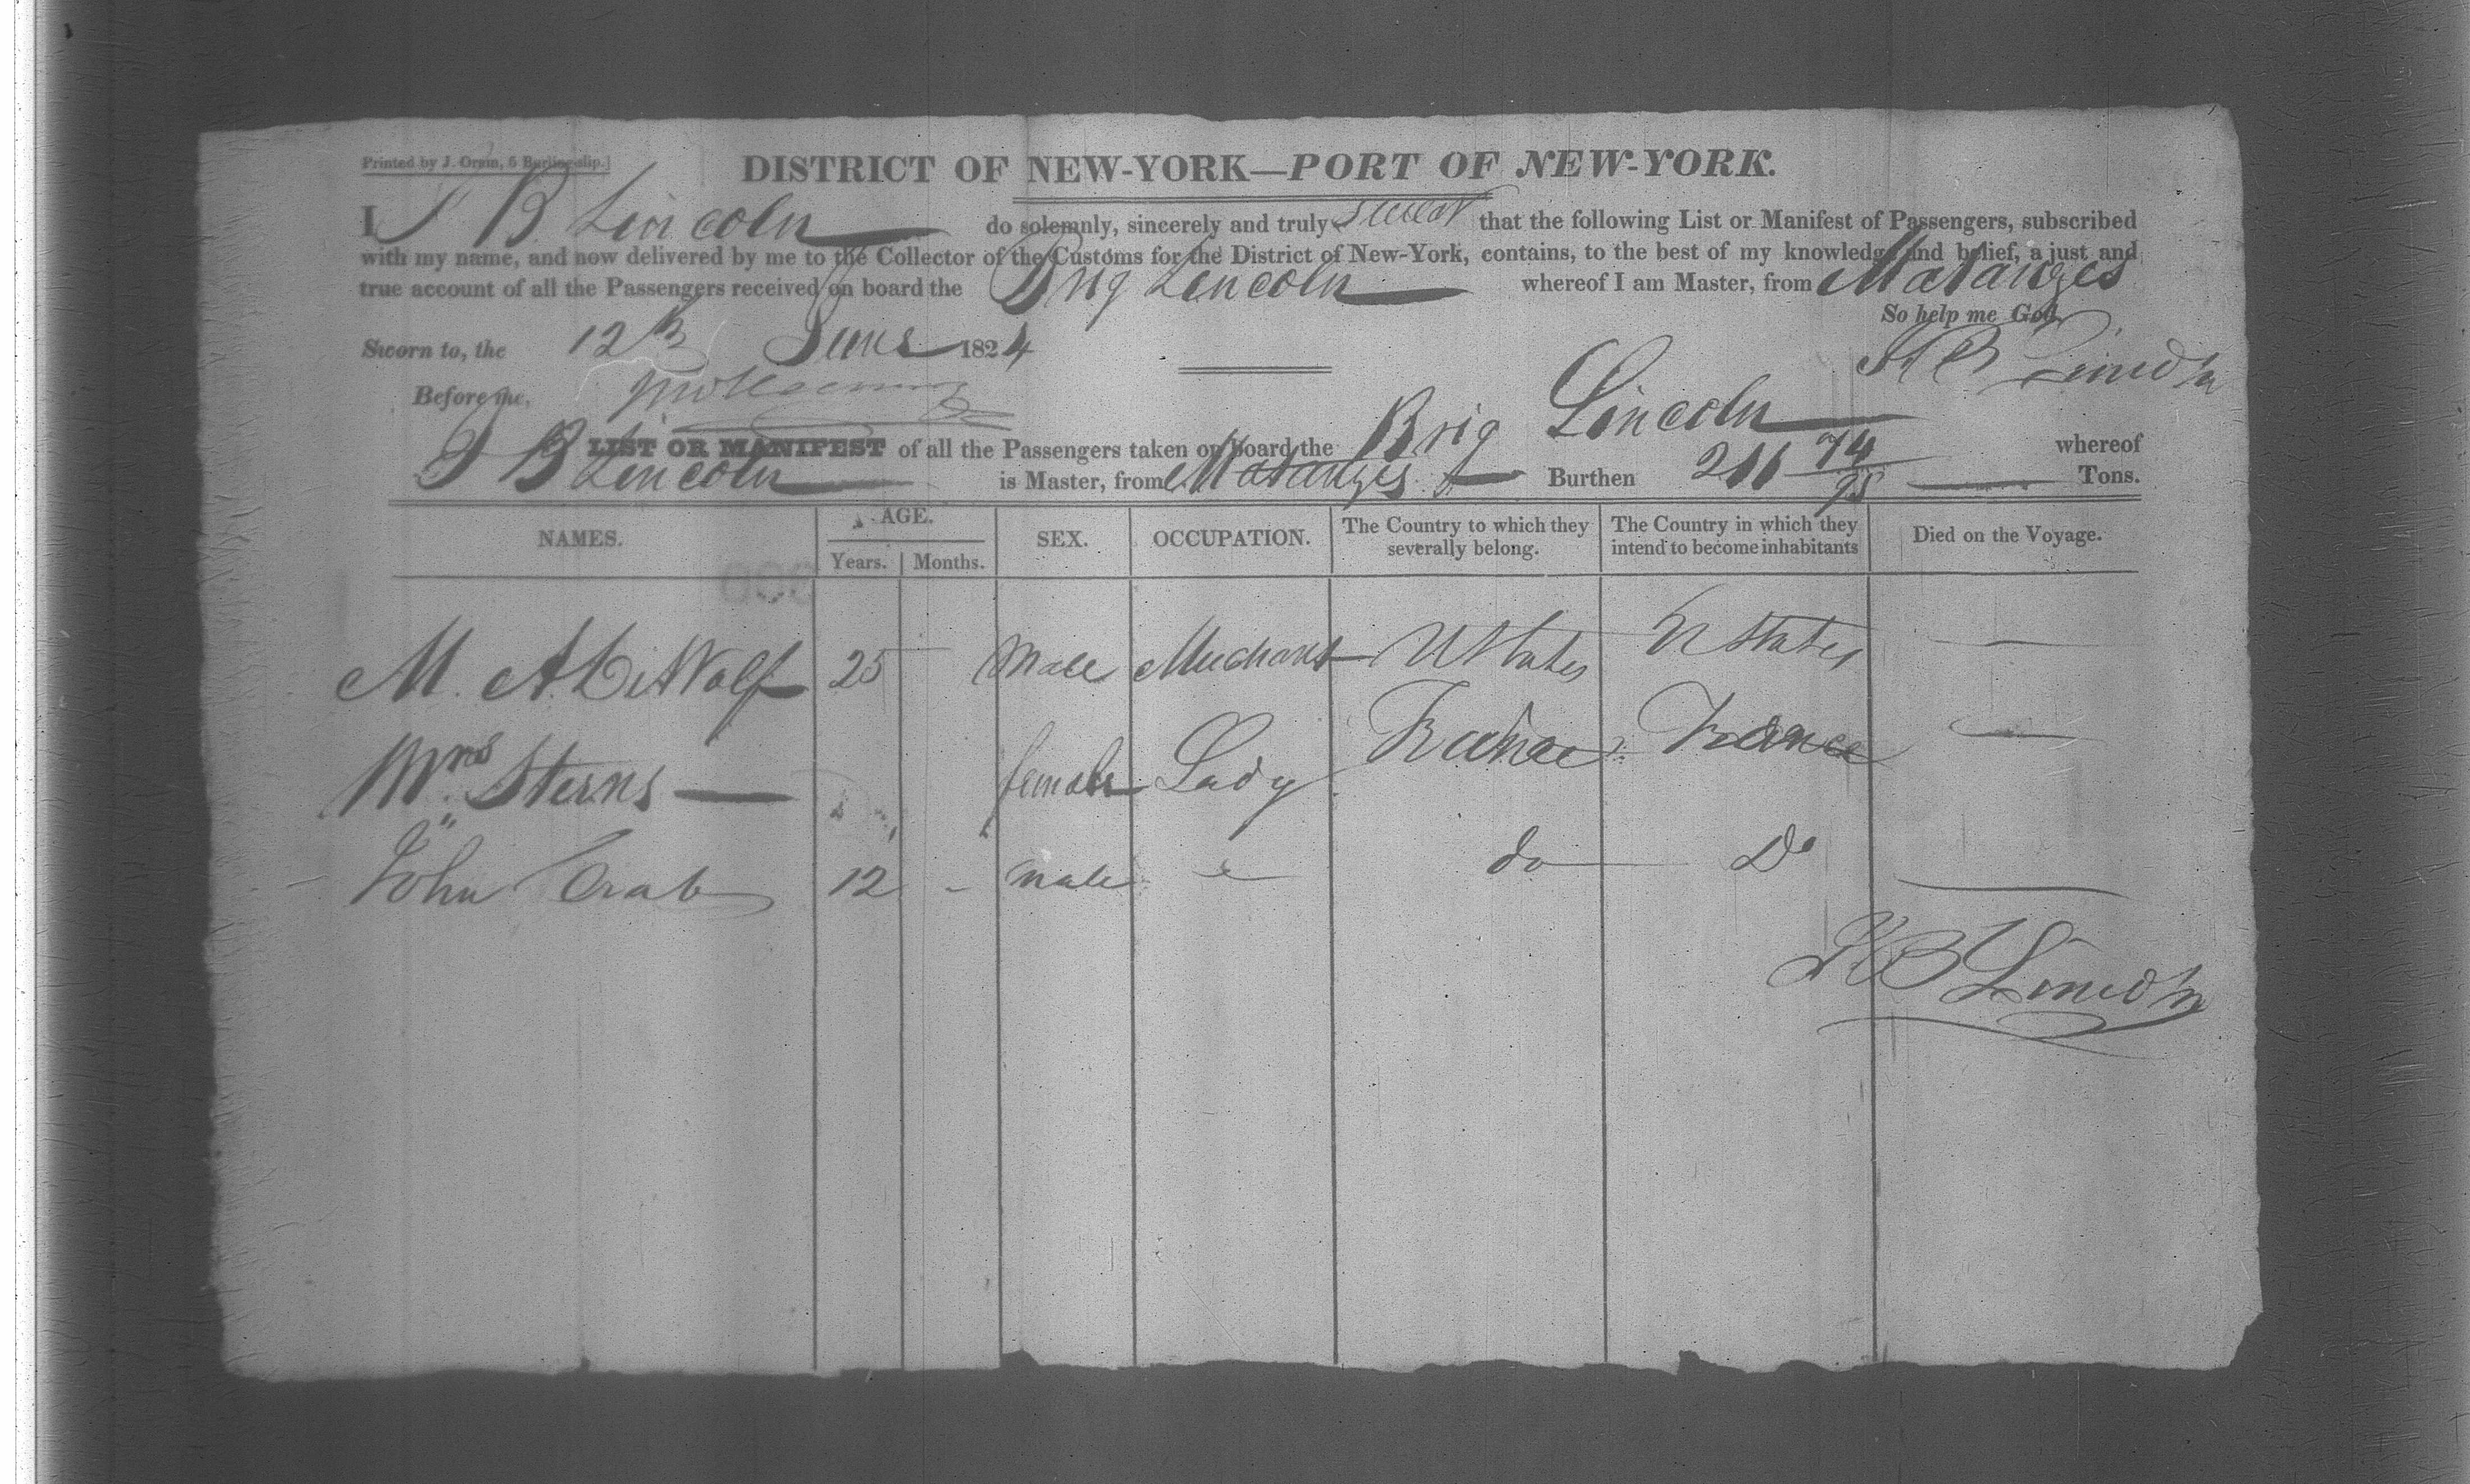 Printed by J. Oram, 5 Burling-slip.]
DISTRICT OF NEW-YORK—PORT OF NEW-YORK.
I J B Lincoln do solemnly, sincerely and truly Swear that the following List or Manifest of Passengers, subscribed
with my name, and now delivered by me to the Collector of the Customs for the District of New-York, contains, to the best of my knowledge and belief, a just and
true account of all the Passengers received on board the Brig Lincoln whereof I am Master, from Matanzes
So help me God.
Sworn to, the 12th June 1824
B Lincoln
Before me,
LIST OR MANIFEST of all the Passengers taken on board the Brig Lincoln whereof
J B Lincoln is Master, from Matanzes Burthen 211 74/95 Tons.
NAMES. AGE. SEX. OCCUPATION. The Country to which they severally belong. The Country in which they intend to become inhabitants Died on the Voyage.
Years. Months.
M. A. DeWolf 25 Male Merchant U States U States —
Mrs Sterns — female Lady France France —
John Crab 12 - male — do Do —
B Lincoln